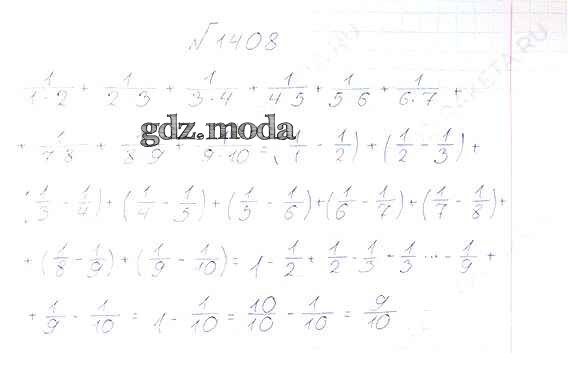 №1408
1/(1·2) + 1/(2·3) + 1/(3·4) + 1/(4·5) + 1/(5·6) + 1/(6·7) +
+ 1/(7·8) + 1/(8·9) + 1/(9·10) = (1/1 - 1/2) + (1/2 - 1/3) +
gdz.moda
(1/3 - 1/4) + (1/4 - 1/5) + (1/5 - 1/6) + (1/6 - 1/7) + (1/7 - 1/8) +
+ (1/8 - 1/9) + (1/9 - 1/10) = 1 - 1/2 + 1/2 - 1/3 - 1/3 ... - 1/9 +
+ 1/9 - 1/10 = 1 - 1/10 = 10/10 - 1/10 = 9/10